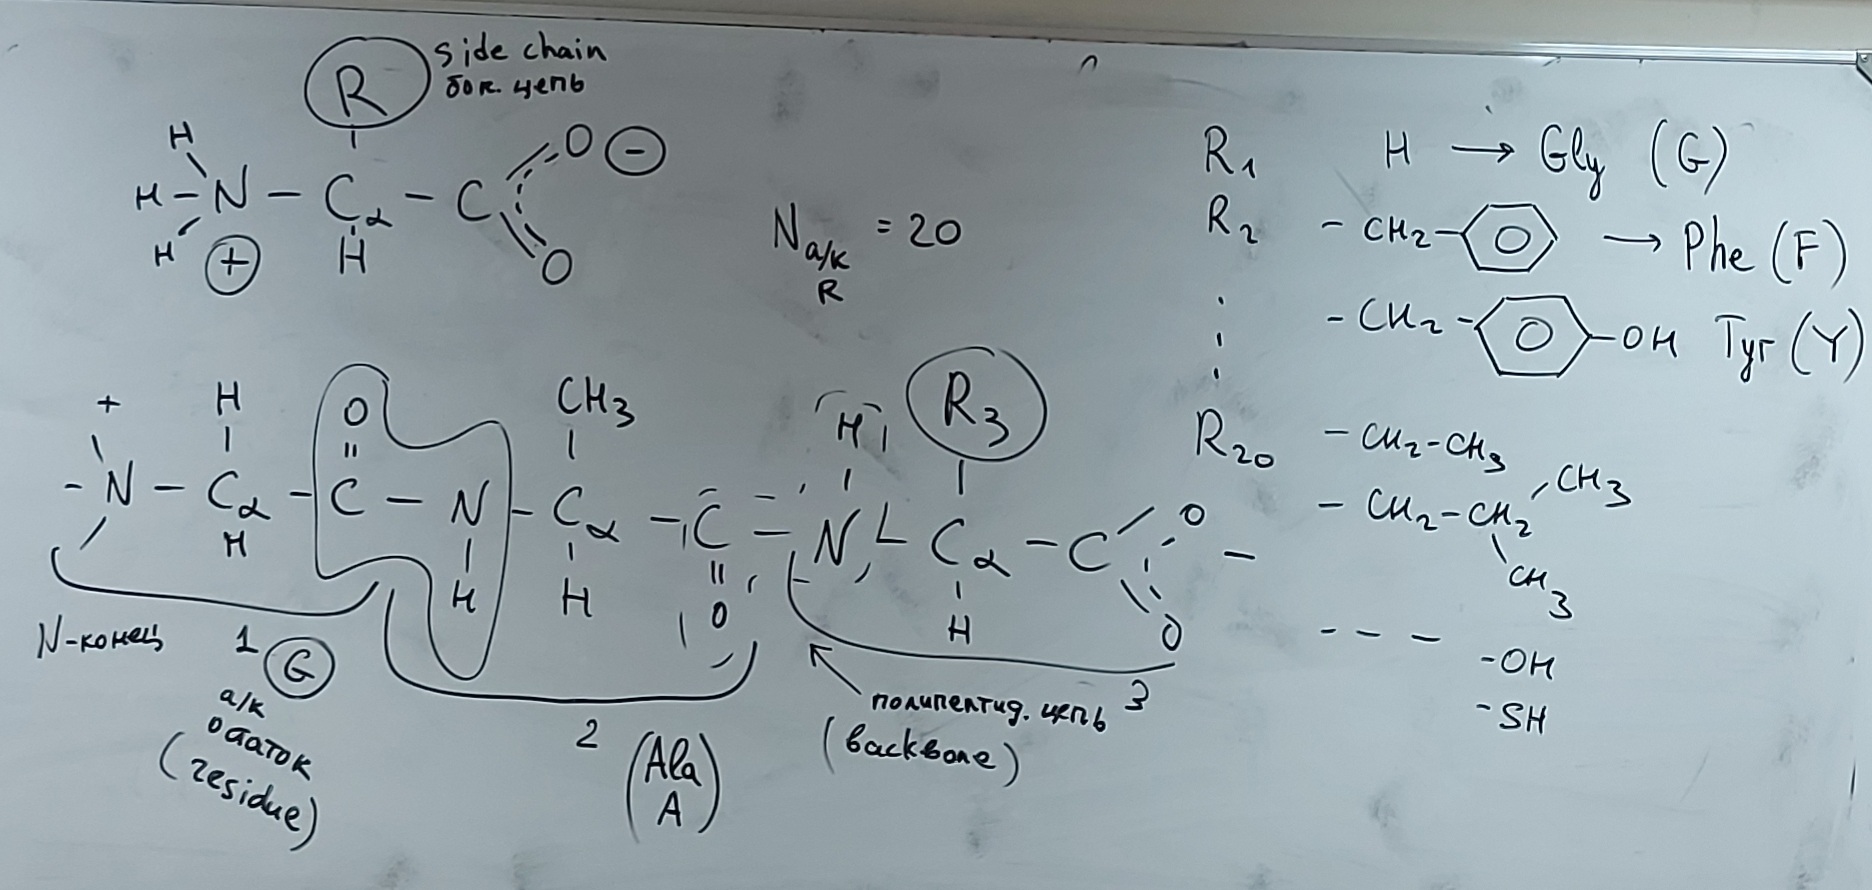 R side chain
бок. цепь
H
H - N - Cα - C O ⊖
H ⊕ H O
N a/к = 20
R
R1 H → Gly (G)
R2 - CH2 - → Phe (F)
- CH2 - - OH Tyr (Y)
R20 - CH2 - CH3
- CH2 - CH2 CH3
CH3
- - -
- OH
- SH
+ H O CH3 H R3
- N - Cα - C - N - Cα - C - N - Cα - C O -
H H H O H O
N-конец 1 G
а/к
остаток
(residue)
2 (Ala
A)
полипептид. цепь 3
(backbone)